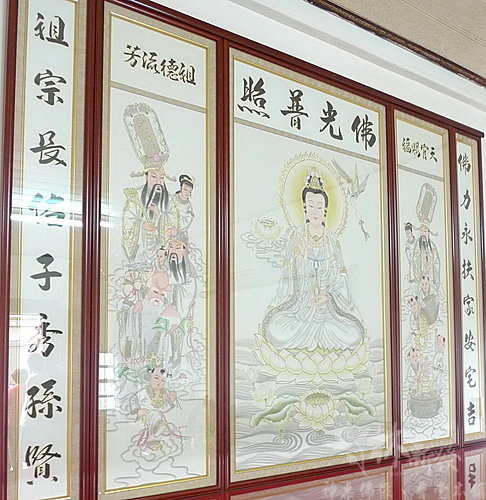 佛光普照
佛力永扶家安宅吉
祖宗長佑子秀孫賢
天官賜福
祖德流芳